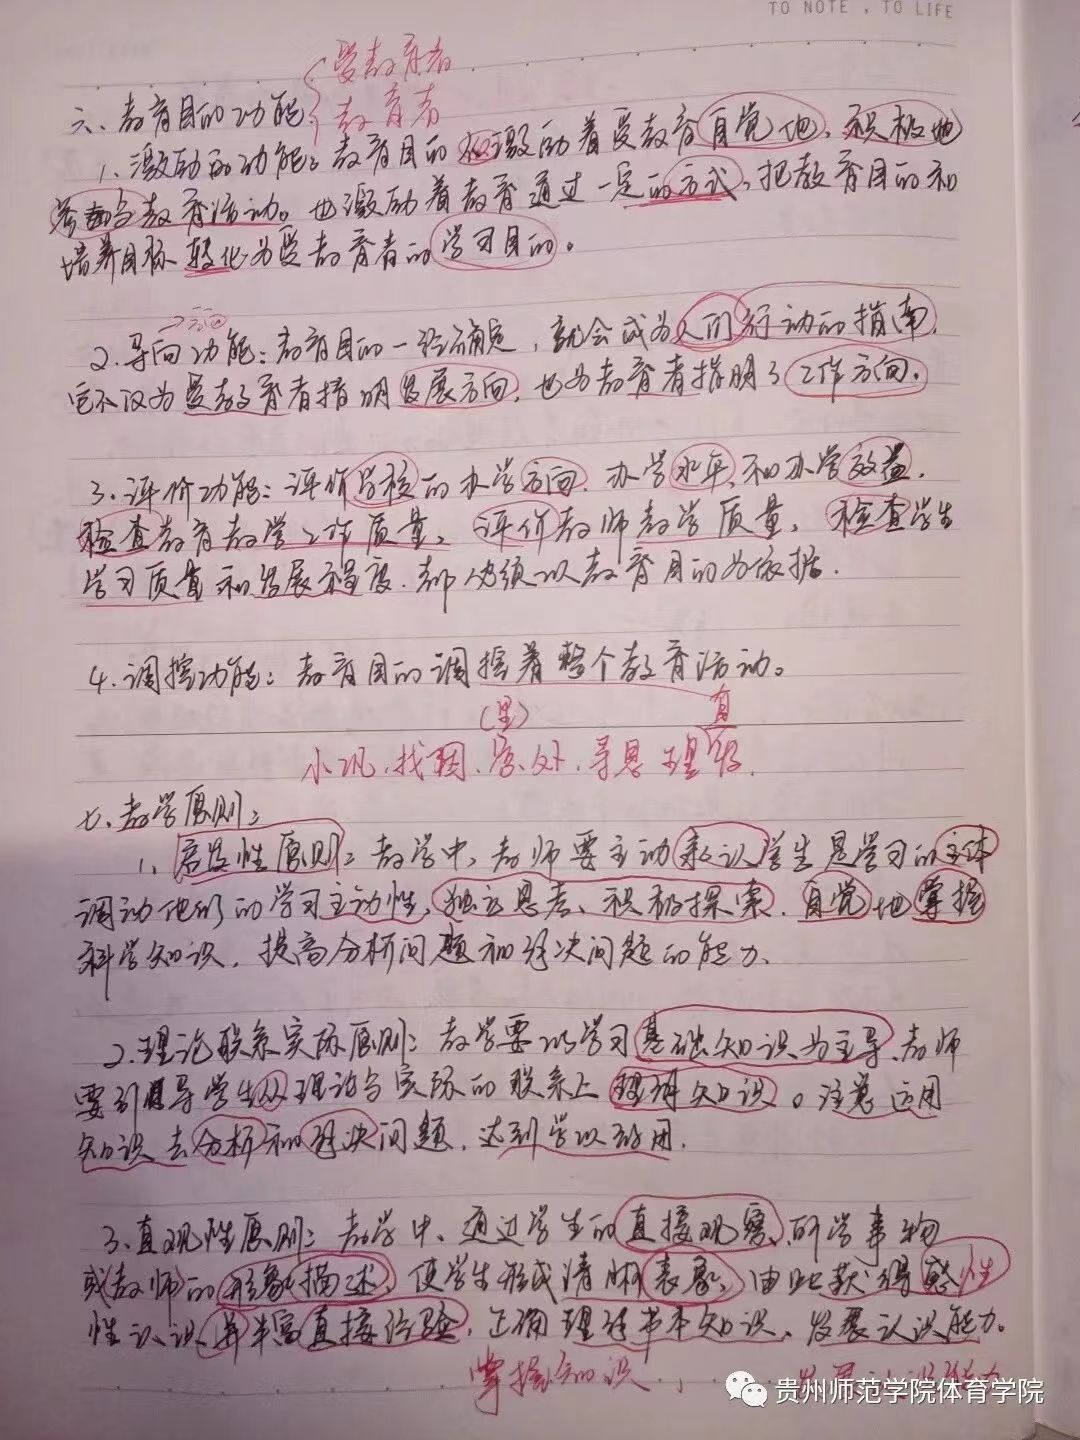 TO NOTE , TO LIFE
受教育者
六、教育目的功能
教育者
1、激励的功能：教育目的激励着受教育自觉地、积极地
参与教育活动。也激励着教育通过一定的方式、把教育目的和
培养目标转化为受教育者的学习目的。
→方向
2.导向功能：教育目的一经确定，就会成为人们行动的指南，
它不仅为受教育者指明发展方向，也为教育者指明了工作方向。
3.评价功能：评价学校的办学方向、办学水平、和办学效益，
检查教育教学工作质量，评价教师教学质量，检查学生
学习质量和发展程度，都必须以教育目的为依据。
4.调控功能：教育目的调控着整个教育活动。
小巩，找
七、教学原则：
1、启发性原则：教学中，教师要主动承认学生是学习的主体
调动他们的学习主动性，独立思考、积极探索，自觉地掌握
科学知识，提高分析问题和解决问题的能力、
2.理论联系实际原则：教学要以学习基础知识为主导，教师
要引导学生从理论与实际的联系上理解知识。注意运用
知识去分析和解决问题，达到学以致用.
3.直观性原则：教学中、通过学生的直接观察所学事物
或教师的形象描述，使学生形成清晰表象，由此获得感性
性认识、并丰富直接经验，正确理解书本知识，发展认识能力。
掌握知识，
贵州师范学院体育学院